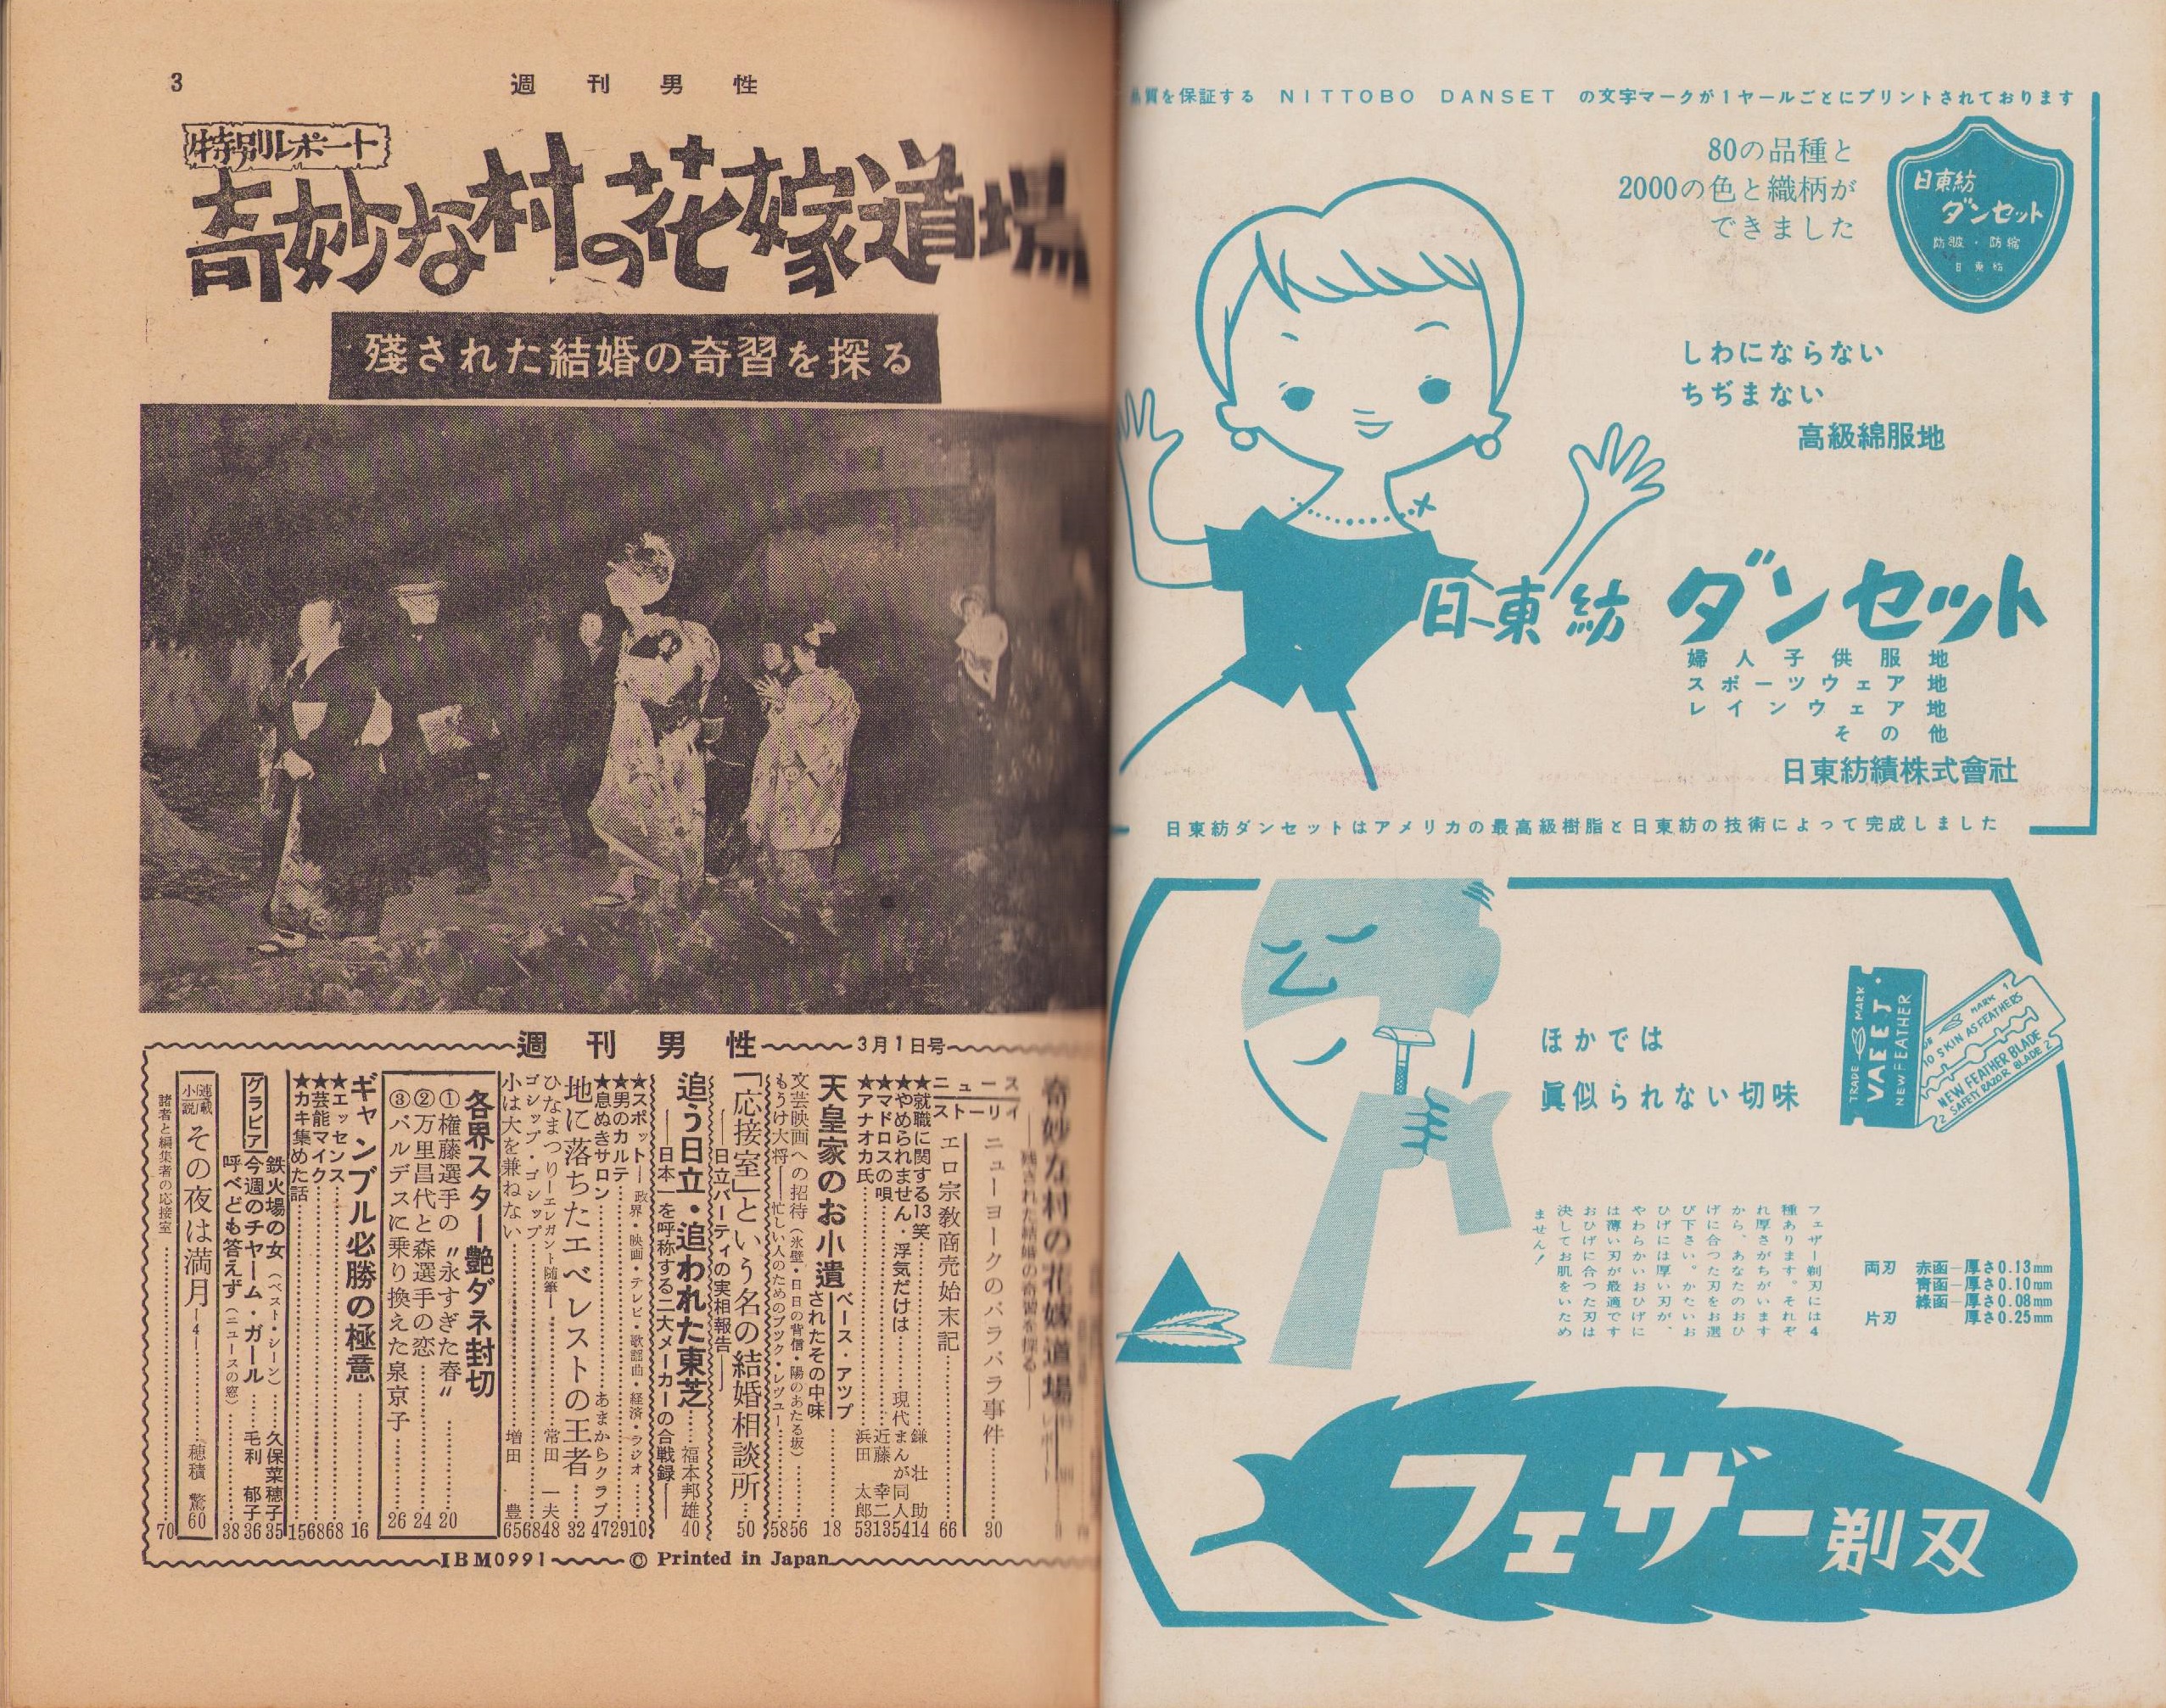 3
週刊男性
特別レポート
奇妙な村の花嫁道場
殘された結婚の奇習を探る
週刊男性
3月1日号
奇妙な村の花嫁道場
―残された結婚の奇習を探る―
ニュース
ストーリイ
ニューヨークのバラバラ事件 30
エロ宗教商売始末記 66
★就職に関する13笑 鎌壮助 14
★やめられません・浮気だけは 現代まんが同人 54
★マドロスの唄 近藤幸二 13
★アナオカ氏 浜田太郎 53
天皇家のお小遣 ベース・アップされたその中味 18
文芸映画への招待(氷壁・日日の背信・陽のあたる坂) 56
もうけ大将―忙しい人のためのブック・レヴュー 58
「応接室」という名の結婚相談所 50
―日立パーティの実相報告―
追う日立・追われた東芝 福本邦雄 40
―日本一を呼称する二大メーカーの合戦録―
★スポット―政界・映画・テレビ・歌謡曲・経済・ラジオ 10
★男のカルテ 29
★息ぬきサロン あまからクラブ 47
地に落ちたエベレストの王者 32
ひなまつり―エレガント随筆― 常田一夫 48
ゴシップ・ゴシップ 68
小は大を兼ねない 増田豊 65
各界スター艶ダネ封切
①権藤選手の〝永すぎた春〟 20
②万里昌代と森選手の恋 24
③バルデスに乗り換えた泉京子 26
ギャンブル必勝の極意 16
★エッセンス 68
★芸能マイク 68
★カキ集めた話 15
グラビア
鉄火場の女(ベスト・シーン) 久保菜穂子 35
今週のチャーム・ガール 毛利郁子 36
呼べども答えず(ニュースの窓) 38
連載小説 その夜は満月―4― 穂積驚 60
諸者と編集者の応接室 70
IBM0991
© Printed in Japan
質を保証する NITTOBO DANSET の文字マークが1ヤールごとにプリントされております
80の品種と
2000の色と織柄が
できました
日東紡
ダンセット
防皺・防縮
日東紡
しわにならない
ちぢまない
高級綿服地
日東紡 ダンセット
婦人子供服地
スポーツウェア地
レインウェア地
その他
日東紡績株式會社
日東紡ダンセットはアメリカの最高級樹脂と日東紡の技術によって完成しました
ほかでは
眞似られない切味
TRADE MARK
NEW FEATHER
MARK
TO SKIN AS FEATHERS
NEW FEATHER BLADE
SAFETY RAZOR BLADE
フェザー剃刃には4
種あります。それぞ
れ厚さがちがいます
から、あなたのおひ
げに合つた刃をお選
び下さい。かたいお
ひげには厚い刃が、
やわらかいおひげに
は薄い刃が最適です
おひげに合つた刃は
決してお肌をいため
ません!
両刃 赤函―厚さ0.13mm
青函―厚さ0.10mm
綠函―厚さ0.08mm
片刃 厚さ0.25mm
フェザー剃刃